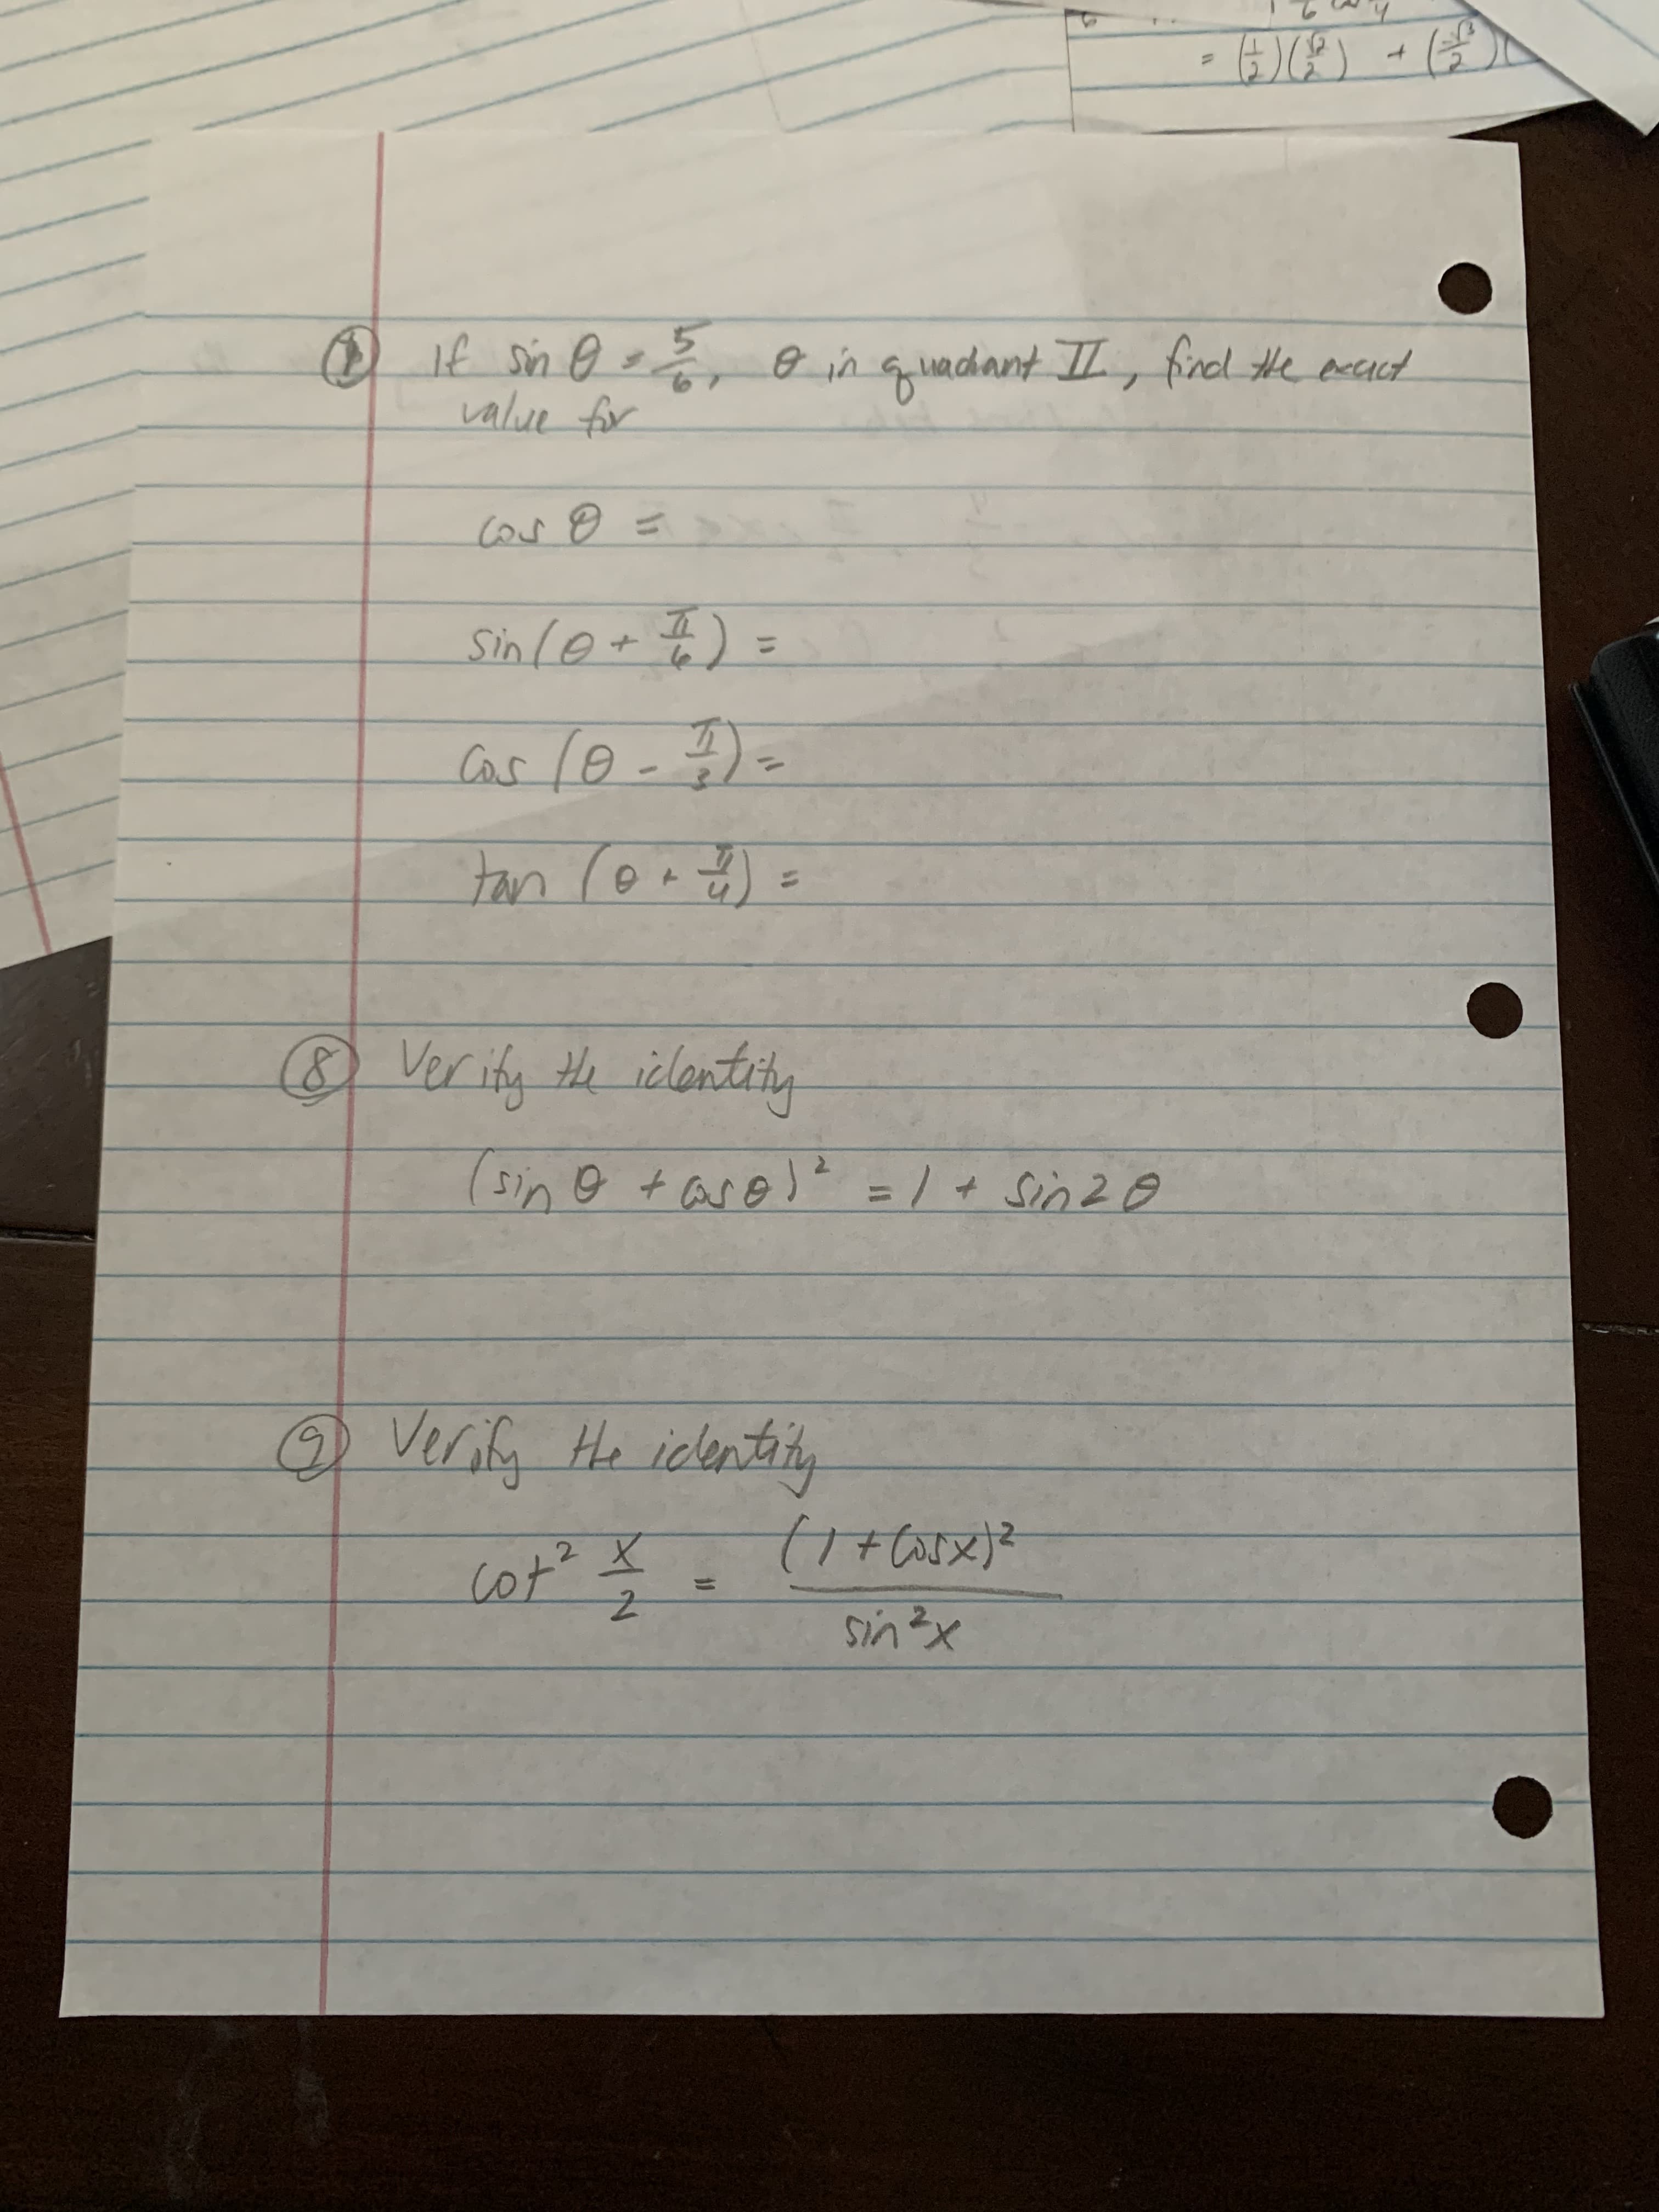 = (1/2)(√2/2) + (-√3/2)(
⑦ If sin θ = 5/6, θ in quadrant II, find the exact
value for
cos θ =
sin(θ + π/6) =
cos (θ - π/3) =
tan (θ + π/4) =
⑧ Verify the identity
(sin θ + cos θ)² = 1 + sin 2θ
⑨ Verify the identity
cot² x/2 = (1 + cos x)² / sin² x